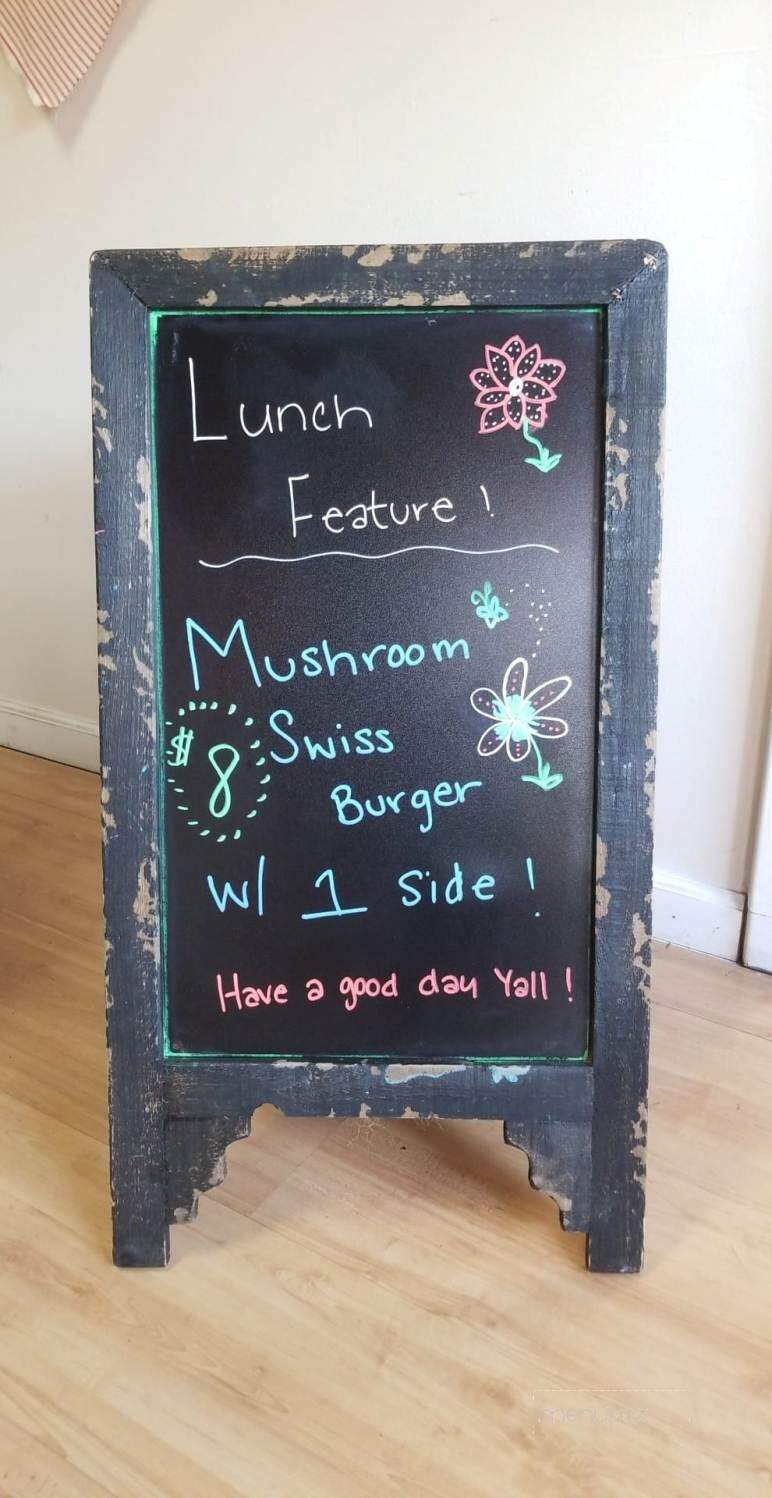 Lunch
Feature !
Mushroom
$8 Swiss
Burger
w/ 1 Side !
Have a good day Yall !